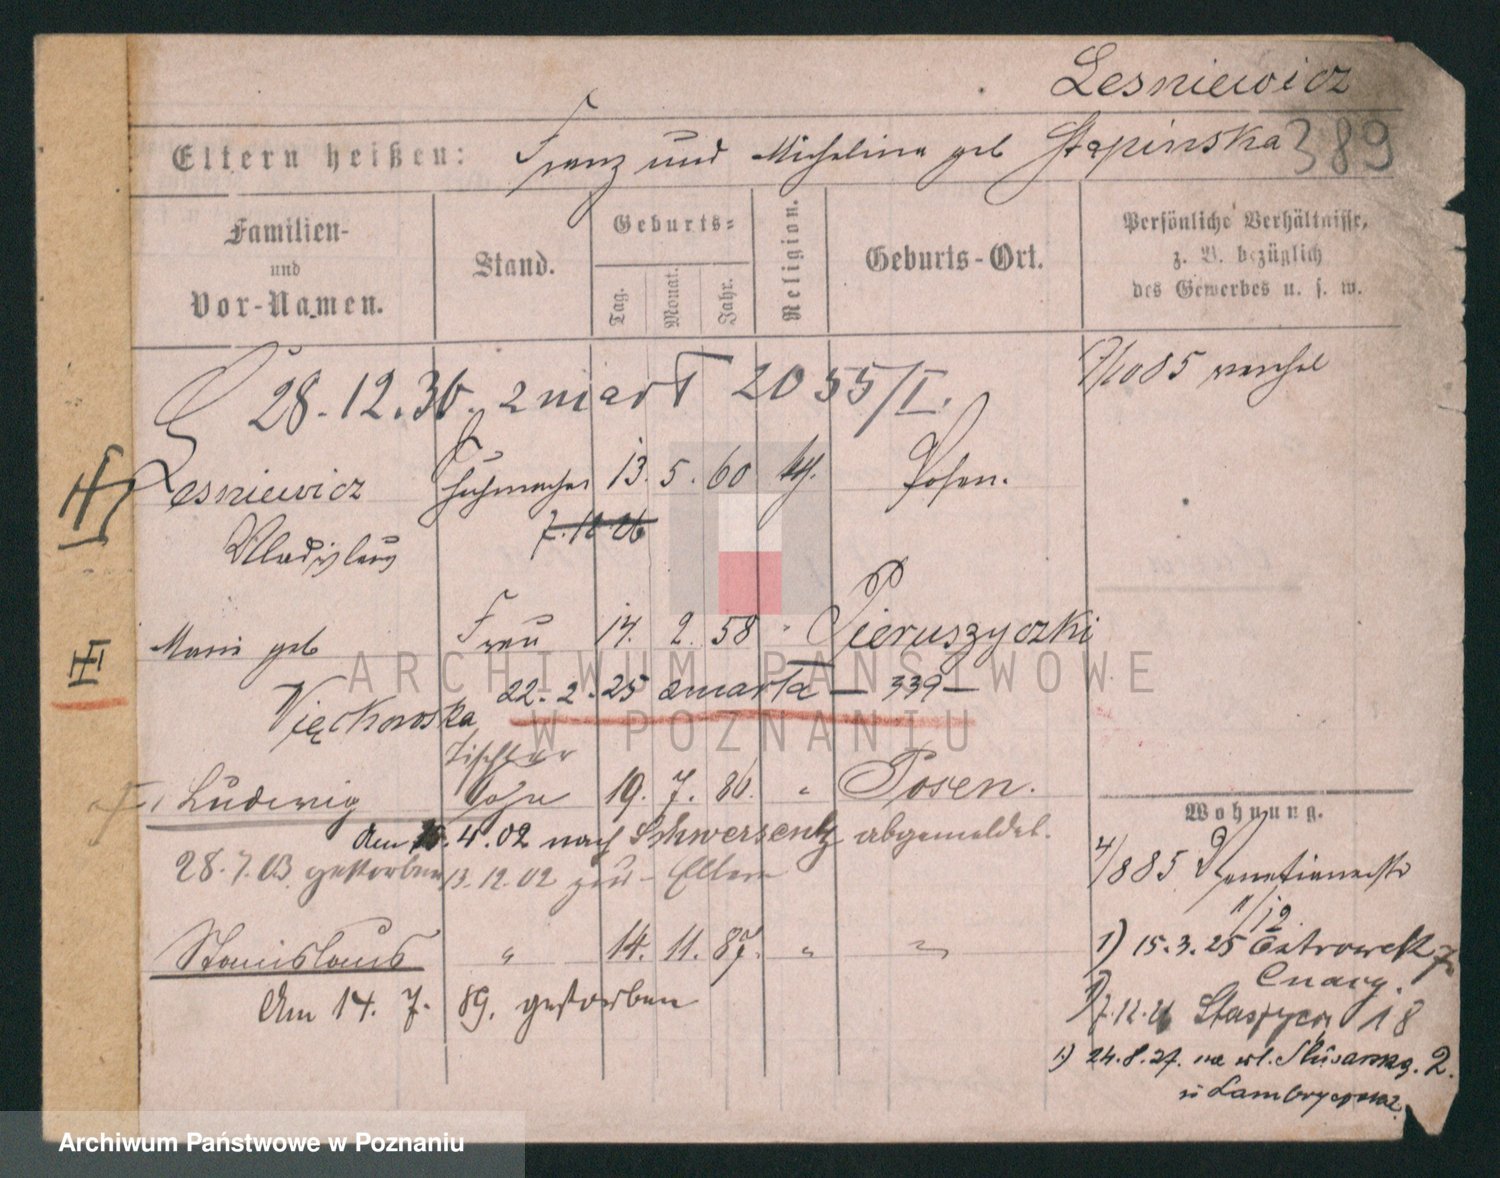 Lesniewicz
Eltern heißen: Franz und Michalina geb Stępinska 389
Familien-
und
Vor-Namen.
Stand.
Geburts-
Tag.
Monat.
Jahr.
Religion.
Geburts-Ort.
Persönliche Verhältnisse,
z. B. bezüglich
des Gewerbes u. s. w.
28.12.36. zmarł 2055/I.
7/10 85
Lesniewicz Schuhmacher 13. 5. 60 kth. Posen.
7.12.26
Wladislaus
Marie geb Frau 14. 2. 58 " Pieruszyczki
Więckowska
22.2.25 zmarła — 339 —
Tischler
Ludewig Sohn 19. 7. 86. " Posen.
Am 15. 4. 02 nach Schwersentz abgemeldet.
28.7.03 gestorben 13.12.02 zu Eltern
Stanislaus " 14. 11. 87. " "
Am 14. 7. 89. gestorben
Wohnung.
4/8 85 Venetianerstr
11/12
1) 15.3.25 Ostrowek 7
7.12.26 Staszyca 18
1) 24.8.27. na ul. Slusarską. 2.
ARCHIWUM PAŃSTWOWE
W POZNANIU
Archiwum Państwowe w Poznaniu